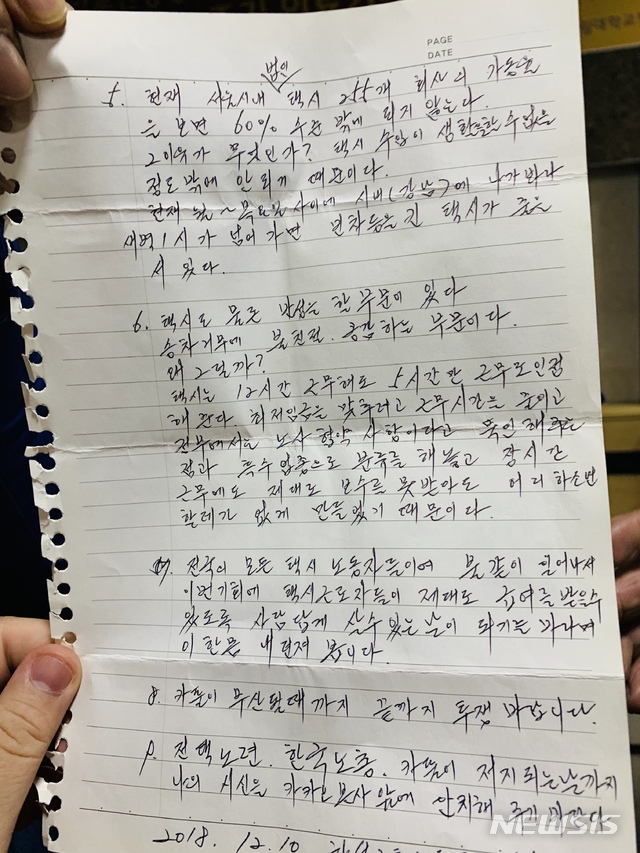 PAGE
DATE
법인
5. 현재 서울시내 택시 255개 회사의 가동률
을 보면 60% 수준 밖에 되지 않는다.
그이유가 무엇인가? 택시 수입이 생활을할수없을
정도 밖에 안되기 때문이다.
현재 월~목요일 사이에 시내(강남)에 나가바라
새벽1시가 넘어가면 빈차등을 킨 택시가 줄을
서 있다.
6. 택시도 물론 반성을 할 부문이 있다
승차거부에 불친절. 공감하는 부문이다.
왜 그럴까?
택시는 12시간 근무해도 5시간만 근무로인정
해 준다. 최저임금을 맞추려고 근무시간을 줄이고
정부에서는 노사협약 사항이라고 묵인해주는
점과 특수업종으로 분류를 해놓고 장시간
근무에도 제대로 보수를 못받아도 어디 하소연
할데가 없게 만들었기 때문이다.
7. 전국의 모든 택시 노동자들이여 불같이 일어나서
이번기회에 택시근로자들이 제대로 급여를 받을수
있도록 사람 답게 살수있는 날이 되기를 바라며
이 한몸 내던져 봅니다.
8. 카풀이 무산될때 까지 끝까지 투쟁 바랍니다.
9. 전택노련. 한국노총. 카풀이 저지되는날까지
나의 시신을 카카오 본사 앞에 안치해 주기 바란다
2018. 12. 10
NEWSIS